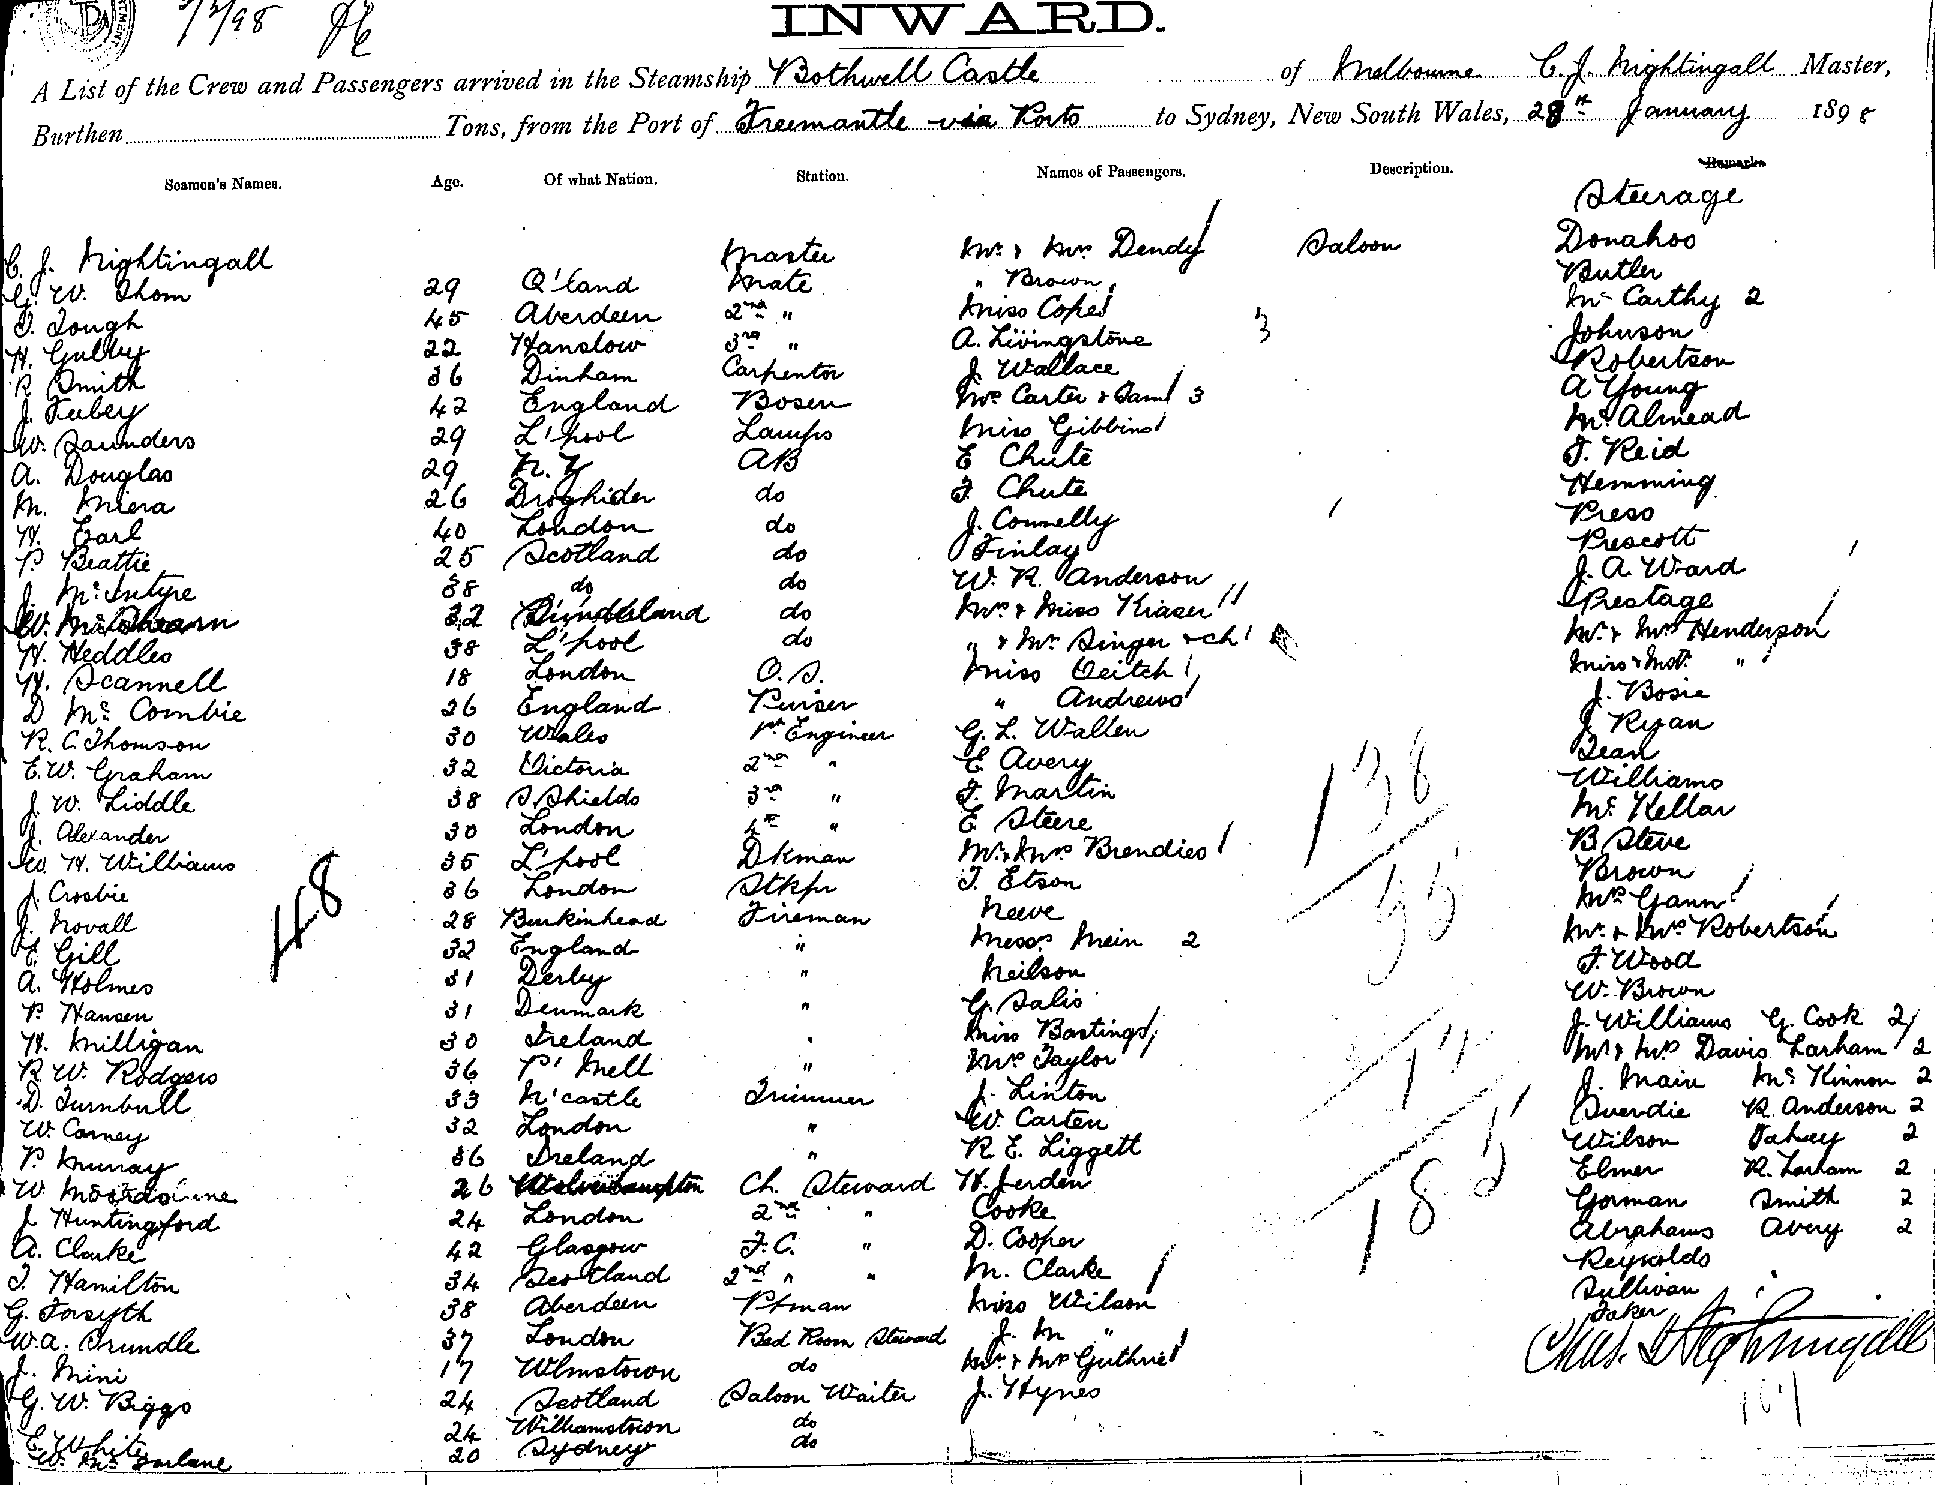 3/2/98
INWARD.
A List of the Crew and Passengers arrived in the Steamship Bothwell Castle of Melbourne C. J. Nightingall Master,
Burthen Tons, from the Port of Freemantle via Ports to Sydney, New South Wales, 28th January 1898
Seamen's Names. Age. Of what Nation. Station. Names of Passengers. Description. Remarks
Steerage
C. J. Nightingall Master Mr & Mrs Dendy Saloon Donahoo
G. W. Thom 29 Q'land Mate " Brown Butler
T. Tough 45 Aberdeen 2nd " Miss Cope Mc Carthy 2
H. Gulley 22 Hanslow 3rd " A. Livingstone 3 Johnson
R Smith 36 Dinham Carpentor J. Wallace Robertson
J. Tubey 42 England Bosen Mrs Carter & Fam 3 A Young
W. Saunders 29 L'pool Lamps Miss Gibbins Mc Almead
A. Douglas 29 N. Z AB E Chute T. Reid
M. Miera 26 Droghider do F Chute Hemming
H. Earl 40 London do J. Connelly Press
P. Beattie 25 Scotland do Finlay Prescott
J. Mc Intyre 38 do do W. R. Anderson J. A. Ward
W. 32 Sunderland do Mrs & Miss Fraser Prestage
H. Heddles 38 L'pool do " & Mr Singer & ch Mr & Mrs Henderson
H. Scannell 18 London O. S. Miss Veitch Miss & Mst "
D Mc Combie 26 England Purser " Andrews J. Bosie
R. C. Thomson 30 Wales 1st Engineer G. L. Wallen J Ryan
E. W. Graham 32 Victoria 2nd " E Avery Dean
J. W. Liddle 38 S Shields 3rd " F. Martin Williams
J. Alexander 30 London 4th " E Steere Mc Kellar
W. H. Williams 35 L'pool Dkman Mr & Mrs Brendies B Steve
J. Crosbie 36 London Stkpr T. Etson Brown
J. Novall 28 Burkinhead Fireman Neeve Mrs Gann
E. Gill 32 England " Messrs Mein 2 Mr & Mrs Robertson
A. Holmes 31 Derby " Neilson F. Wood
P. Hansen 31 Denmark " G. Salis W. Brown
H. Milligan 30 Ireland " Miss Bastings J. Williams G. Cook 2
R. W. Rodgers 36 P' Mell " Mrs Taylor Mr & Mrs Davis Larham 2
D. Turnbull 33 N'castle Trimmer J. Linton J. Main Mc Kinnon 2
W. Carney 32 London " W. Carten R. Anderson 2
P. Murray 36 Ireland " R. E. Liggett Wilson Fahey 2
W. 26 Wolverhampton Ch. Steward H. Jerden Elmer R. Larham 2
J Huntingford 24 London 2nd " Cooke Gorman Smith 2
A. Clarke 42 Glasgow F. C. " D. Cooper Abrahams Avery 2
T. Hamilton 34 Scotland 2nd " " M. Clarke Reynolds
G. Forsyth 38 Aberdeen Ptman Miss Wilson Sullivan
W. A. Trundle 37 London Bed Room Steward J. M " Faker
J. Mini 17 Wlmstown do Mr & Mrs Guthrie
G. W. Biggs 24 Scotland Saloon Waiter J. Hynes
E White 24 Williamstown do
W. Mc Farlane 20 Sydney do
48
138
185
Chas. J Nightingall